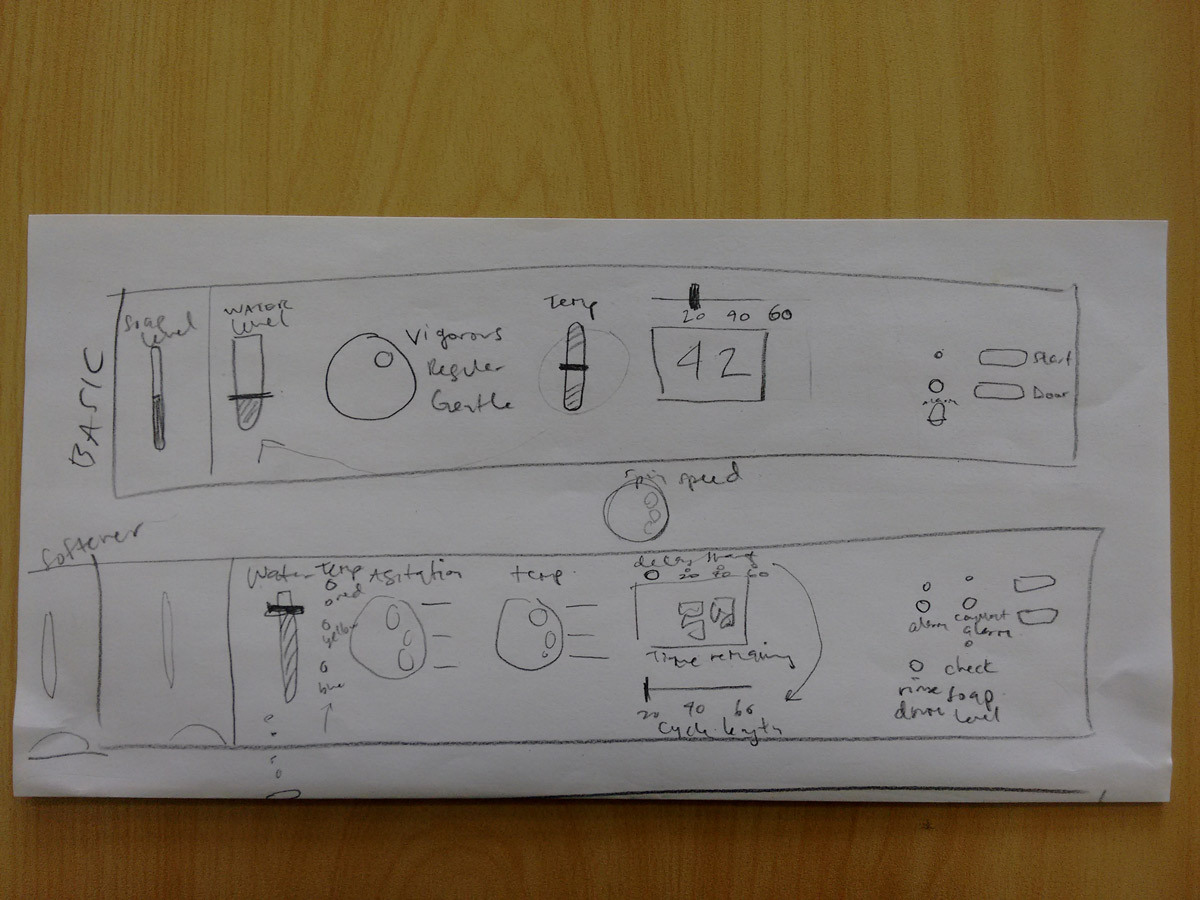 BASIC
Soap
level
WATER
level
Vigorous
Regular
Gentle
Temp
20 40 60
42
Start
Door
Spin speed
Softener
Water
Temp
red
yellow
blue
Agitation
temp
20 40 60
Time remaining
20 40 60
Cycle length
alarm
alarm
check
soap
level
rinse